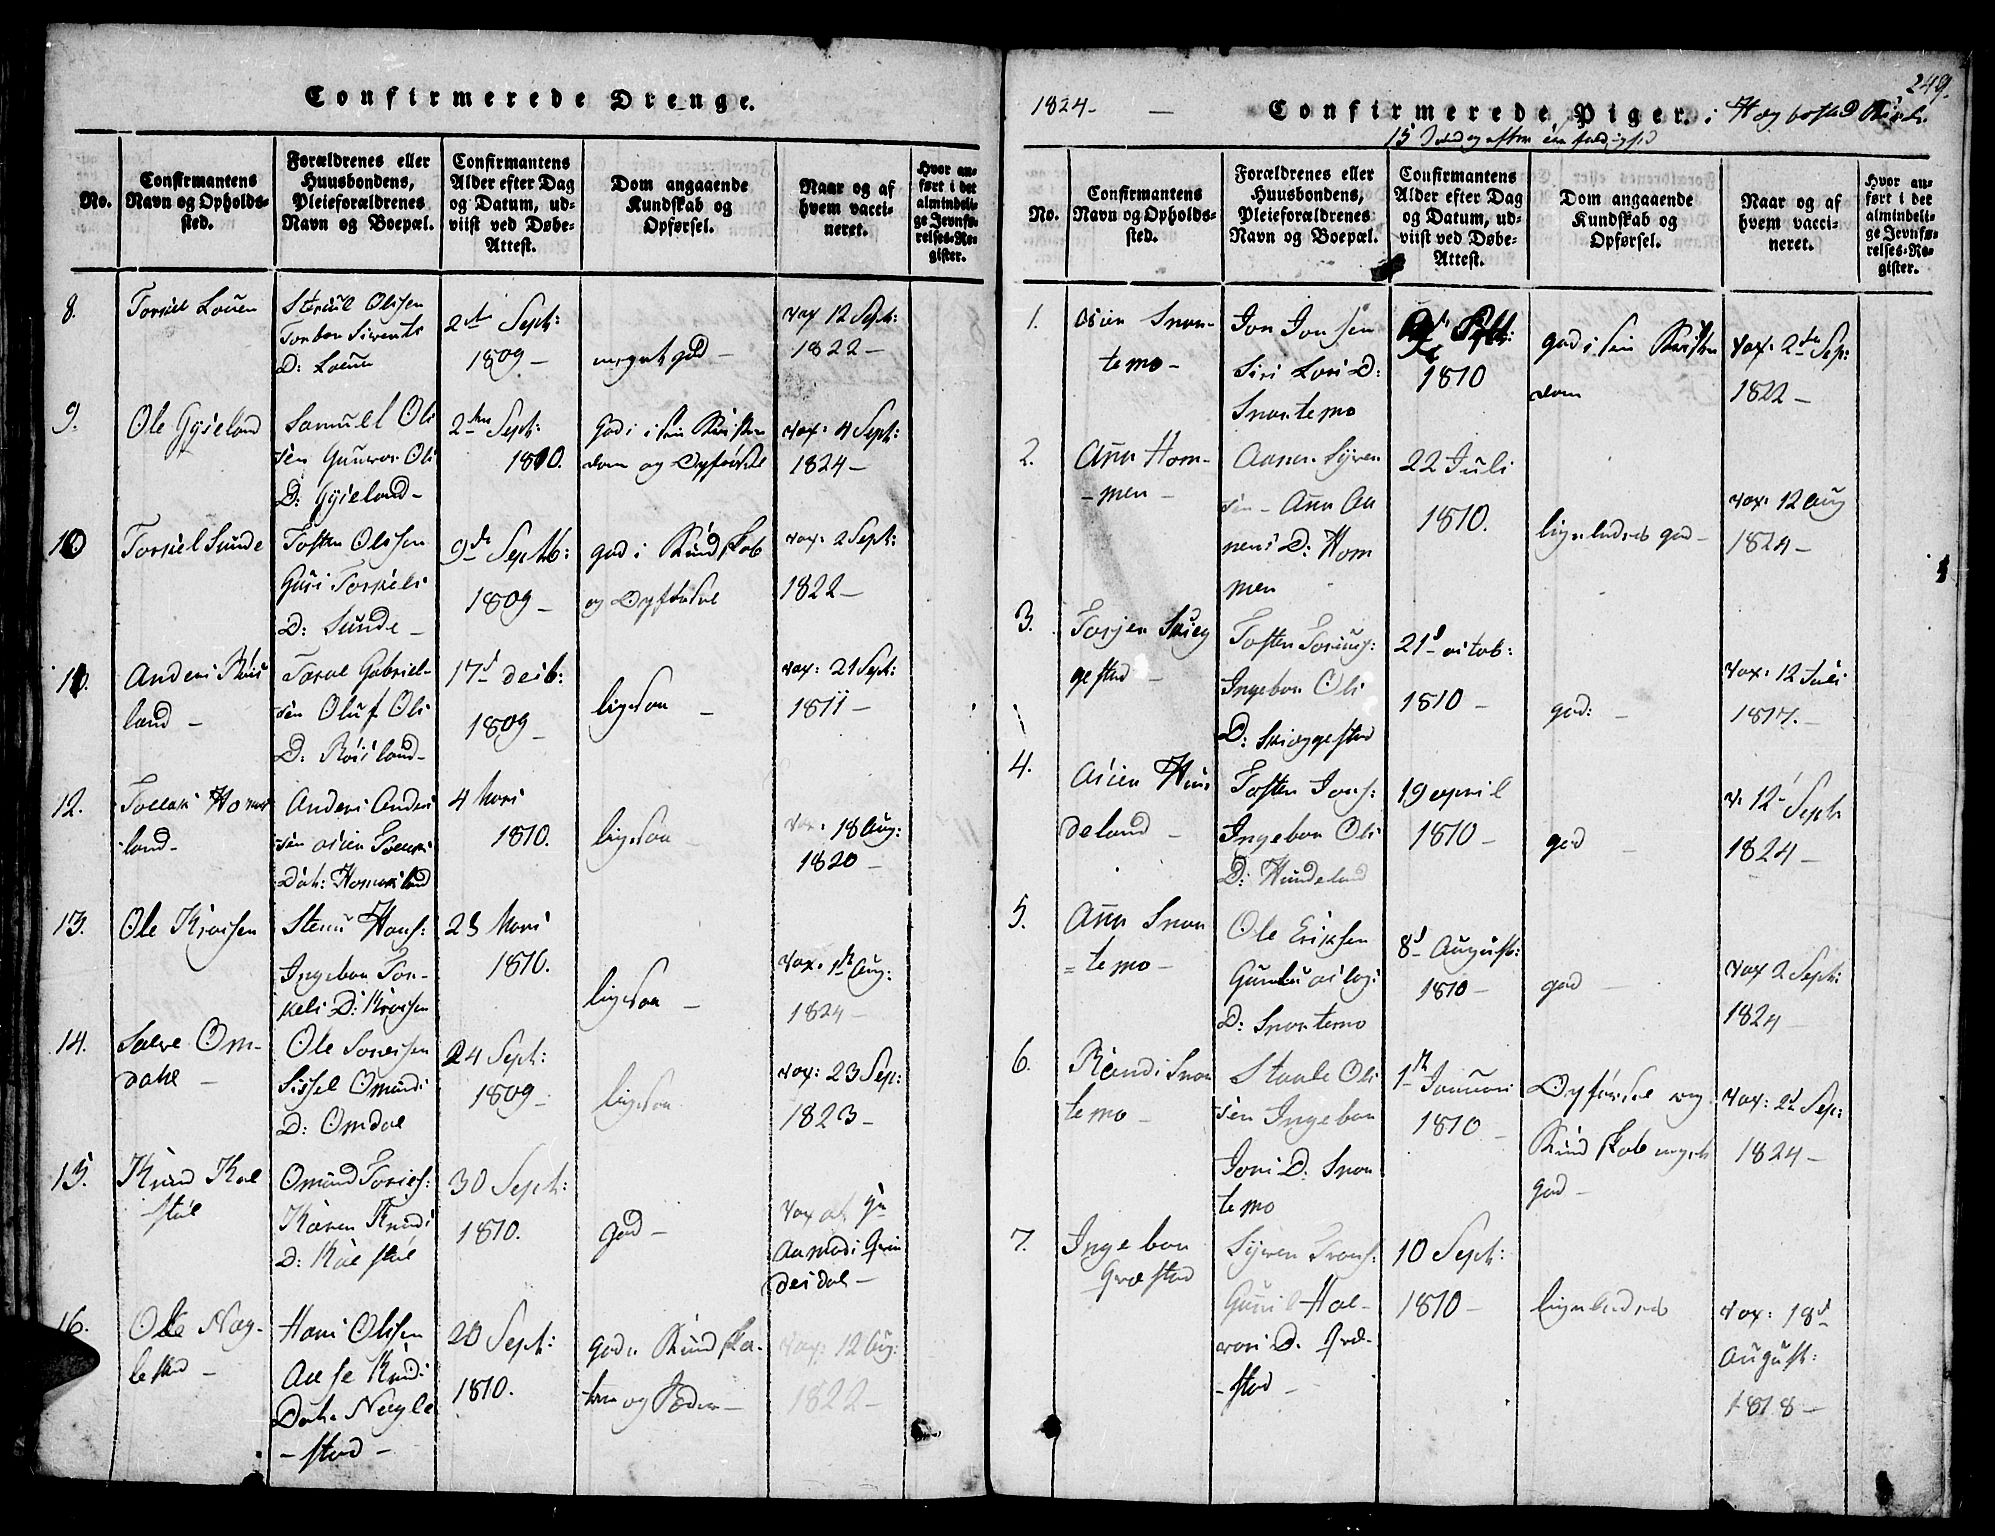 Confirmerede Drenge.
No.
Confirmantens
Navn og Opholds-
sted.
Forældrenes eller
Huusbondens,
Pleieforældrenes
Navn og Boepæl.
Confirmantens
Alder efter Dag
og Datum, ud-
viist ved Døbe-
Attest.
Dom angaaende
Kundskab og
Opførsel.
Naar og af
hvem vacci-
neret.
Hvor an-
ført i det
almindeli-
ge Jevnfø-
relses-Re-
gister.
8.
Torkiel Louen
Olsen
Siverts
D:
2den Sept:
1809 –
meget god –
vax 12 Sept:
1822 –
9.
Ole Gyseland
Samuel Ols
sen Gunvor Ols
D: Gyseland –
2den Sept:
1810.
god i sin Kristen
dom og Opførsel
vax: 4 Sept:
1824 –
10
Torkiel Sunde
Tosten Olssen
Guri Torkels
D: Sunde –
9de Septb:
1809 –
god i Kundskab
og Opførsel
vax: 2 Sept:
1822 –
11.
Anders Røis
land –
Taral Gabriel-
sen Oluf Ols
D: Røisland –
17d decb:
1809 –
ligesaa –
vax: 21 Sept:
1811 –
12.
Tollak Homs
land –
Anders Anders
sen
Dat: Homsland
4 Mars
1810.
ligesaa –
vax: 18 Aug:
1820 –
13.
Ole
Hans:
Ingebor Tor-
kels D:
23 Mars
1810.
ligesaa –
vax: 1st Aug:
1824 –
14.
Salve Om-
dahl –
Ole
Sissel Omunds
D: Omdal
24 Sept:
1809 –
ligesaa
vax: 23 Sep:
1823 –
15.
Knud Kal
støl
Omund
Karen Knuds
D: Kalstøl
30 Sept:
1810.
god –
vax af
Aamodi
desdal –
16.
Ole Næg-
lestad –
Hans Olssen
Aase Knuds
Dat: Nægle
– stad –
20 Sept:
1810.
god Kundska-
ber og Sæder –
vax: 12 Aug:
1822 –
1824 – –
Confirmerede Piger. i Hægbostad Kirke.
249.
15
No.
Confirmantens
Navn og Opholds-
sted.
Forældrenes eller
Huusbondens,
Pleieforældrenes
Navn og Boepæl.
Confirmantens
Alder efter Dag
og Datum, ud-
viist ved Døbe-
Attest.
Dom angaaende
Kundskab og
Opførsel.
Naar og af
hvem vacci-
neret.
Hvor an-
ført i det
almindeli-
ge Jevnfø-
relses-Re-
gister.
1.
Snar-
temo –
Jon Jonssen
Siri Lars D:
Snartemo
Sept:
1810
god i sin Kristen
dom
vax: 2den Sep:
1822 –
2.
Ann Hom-
– men –
Aanen Syven
sen – Ann Aa
nens D: Hom
men
22 Juli
1810.
ligeledes god –
vax: 12 Aug
1824 –
3.
Torjer Skieg
gestad –
Tosten
Ingebor Ols
D: Skieggestad
21d octob:
1810 –
god: –
vax: 12 Juli
1817. –
4.
Hun
deland –
Tosten Jons:
Ingebor Ols
D: Hundeland
19 april
1810 –
god –
v: 12 Sept
1824 –
5.
Ann Snar
= temo –
Ole Eriksen
D: Snartemo
8d August:
1810 –
god –
vax 2 Sept:
1824 –
6.
Randi Snar
temo –
Staale Ols
sen Ingebor
Jons D: Snar
temo
1st Januari
1810 –
Opførsel og
Kundskab meget
god –
vax: 2d Sep:
1824 –
7.
Ingebor
Grøstad
Syven
Gunil Hal-
vors D. Grø-
– stad –
10 Sept:
1810 –
ligeledes
vax: 18d
August:
1818 –